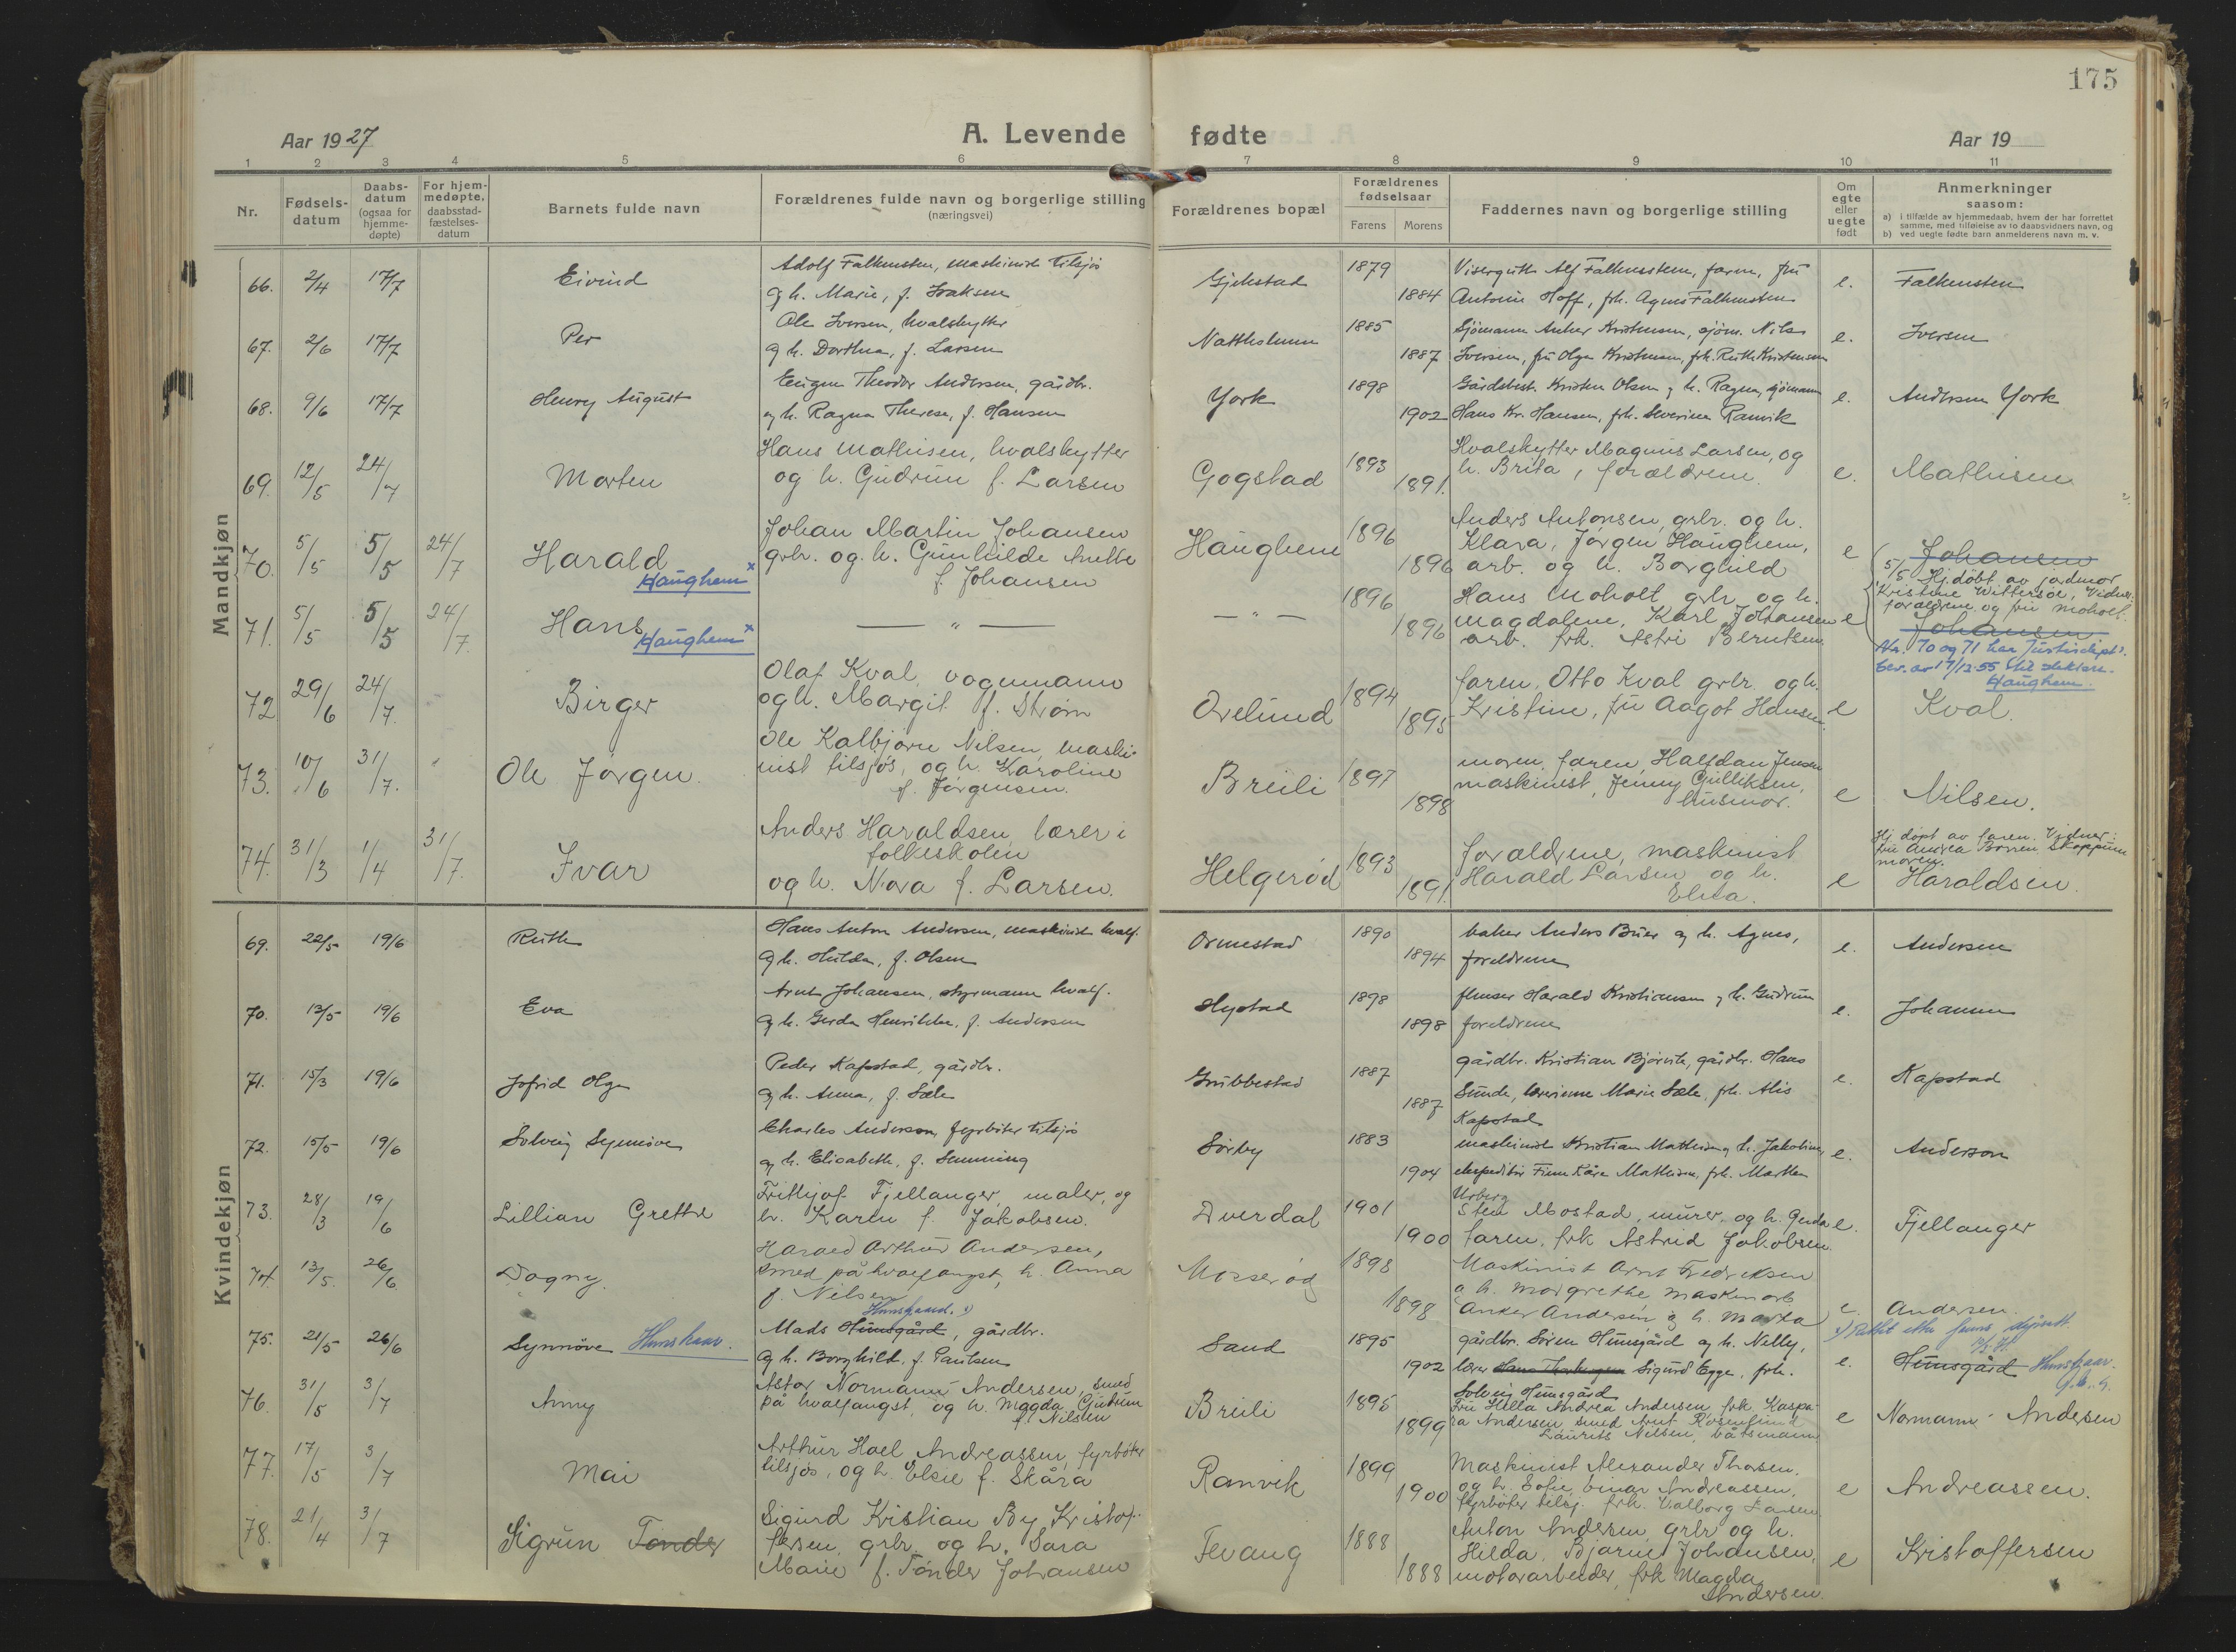 175
Aar 1927
A. Levende fødte
Aar 19
1 2 3 4 5 6 7 8 9 10 11
Nr.
Fødsels-
datum
Daabs-
datum
(ogsaa for
hjemme-
døpte)
For hjem-
medøpte,
daabsstad-
fæstelses-
datum
Barnets fulde navn
Forældrenes fulde navn og borgerlige stilling
(næringsvei)
Forældrenes bopæl
Forældrenes
fødselsaar
Farens Morens
Faddernes navn og borgerlige stilling
Om
egte
eller
uegte
født
Anmerkninger
saasom:
a) i tilfælde av hjemmedaab, hvem der har forrettet
samme, med tilføielse av to daabsvidners navn, og
b) ved uegte fødte barn anmelderens navn m. v.
Mandkjøn
66. 2/4 17/7 Eivind
Adolf Falkensten, maskinist tilsjøs
og h. Marie, f. Isaksen
Gjekstad 1879 1884
Visergutt Alf Falkensten, faren, fru
Antonie Hoff, frk. Agnes Falkensten
e. Falkensten
67. 2/6 17/7 Per
Ole Iversen, hvalskytter
og h. Dorthea, f. Larsen
Nattholmen 1885 1887
Sjømann Anker Kristensen, sjøm. Nils
Iversen, fru Olga Kristensen, frk. Ruth Kristensen
e. Iversen
68. 9/6 17/7 Henry August
Eugen Theodor Andersen, gårdbr.
og h. Ragna Therese, f. Hansen
York 1898 1902
Gårdbest. Kristen Olsen og h. Ragna, sjømann
Hans Kr. Hansen, frk. Severine Ranvik
e. Andersen York
69. 12/5 24/7 Morten
Hans Mathisen, hvalskytter
og h. Gudrun f. Larsen
Gogstad 1893 1891.
Hvalskytter Magnus Larsen, og
h. Brita, forældrene.
e. Mathisen
70. 5/5 5/5 24/7 Harald
Haughem x
Johan Martin Johansen
grbr. og h. Gunhilde Anette
f. Johansen
Haughem 1896 1896
Anders Antonsen, grbr. og h.
Klara, Jørgen Haughem,
arb. og h. Borghild
e Johansen
5/5 Hj.døbt av jordmor
Kristine Wittersøe, Vidner:
forældrene og fru Moholt.
71. 5/5 5/5 24/7. Hans
Haughem x
— " —
— " — 1896 1896
Hans Moholt grbr og h.
Magdalene, Karl Johansen
arb. frk. Astri Berntsen.
e Johansen
Nr. 70 og 71 har Justisdept's
bev. av 17/12-55 til slektsn.
Haughem.
72 29/6 24/7. Birger
Olaf Kval, vognmann
og h. Margit f. Strøm
Orelund 1894 1895
faren, Otto Kval grbr. og h.
Kristine, fru Aagot Hansen.
e Kval.
73. 10/6 31/7. Ole Jørgen.
Ole Kalbjørn Nilsen, maski-
nist tilsjøs, og h. Karoline
f. Jørgensen.
Breili 1897 1898
moren, faren, Halfdan Jensen
maskinist, Jenny Gulliksen,
husmor.
e Nilsen.
74. 31/3 1/4 31/7. Ivar
Anders Haraldsen, lærer i
folkeskolen
og h. Nora f. Larsen.
Helgerød 1893 1891.
forældrene, maskinist
Harald Larsen og h.
Elida.
Hj. døpt av faren. Vidner:
fru Andrea Borren Skoppum
moren.
e Haraldsen.
Kvindekjøn
69. 22/5 19/6 Ruth
Hans Anton Andersen, maskinist hvalf.
og h. Hulda, f. Olsen
Ormestad 1890 1894
baker Anders Buer og h. Agnes,
foreldrene
e. Andersen
70. 13/5 19/6 Eva
Arnt Johansen, styrmann hvalf.
og h. Gerda Henrikke, f. Andersen
Hystad 1898 1898
flenser Harald Kristiansen og h. Gudrun
foreldrene
e. Johansen
71. 15/3 19/6 Jofrid Olga
Peder Kapstad, gårdbr.
og h. Anna, f. Sæle
Grubbestad 1887 1887
gårdbr. Kristian Bjørvik, gårdbr. Hans
Sunde, lærerinne Marie Sæle, frk. Alis
Kapstad
e. Kapstad
72. 15/5 19/6 Solveig Synnøve
Charles Anderson, fyrbøter tilsjøs
og h. Elisabeth, f. Semming
Sørby 1883 1904
maskinist Kristian Mathisen og h. Jakobine,
ekspeditør Finn Kåre Mathisen, frk. Marthe
Urberg
e. Anderson
73. 28/3 19/6 Lillian Grethe
Frithjof Fjellanger, maler, og
h. Karen f. Jakobsen.
Dverdal 1901 1900
Sten Mostad, murer, og h. Gerda
faren, frk Astrid Jakobsen.
e. Fjellanger
74. 13/5. 26/6. Dagny.
Harald Arthur Andersen,
smed på hvalfangst, h. Anna
f. Nilsen
Mosserød 1898 1898
Maskinist Arnt Fredriksen
og h. Margrethe maskinarb
Anker Andersen og h. Marta
e. Andersen.
75. 21/5 26/6 Synnøve Hunskaar.
Hunskaar. x)
Mads Hunsgård, gårdbr.
og h. Borghild, f. Paulsen
Sand 1895 1902
gårdbr. Søren Hunsgård og h. Nelly,
lærer Sigurd Egge, frk.
Solveig Hunsgård
e. Hunsgård Hunskaar.
76. 31/5 3/7 Anny
Astor Normann Andersen, smed
på hvalfangst, og h. Magda Gudrun
f. Nilsen
Breili 1895 1899
Fru Hilla Andrea Andersen, frk. Kaspa-
ra Andersen, smed Arnt Rosenlund
Laurits Nilsen, båtsmann.
e Normann-Andersen
77. 17/5 3/7 Mai
Arthur Hael Andreassen, fyrbøter
tilsjøs, og h. Elsie f. Skåra
Ranvik 1899 1900
Maskinist Alexander Thorsen.
og h. Sofie, Einar Andreassen,
fyrbøter tilsj. frk. Valborg Larsen
e Andreassen.
78. 21/4 3/7 Sigrun Tønder
Sigurd Kristian By Kristof-
fersen, grbr. og h. Sara
Marie f. Tønder Johansen
Fevang 1888 1888
Anton Andersen, grbr og h.
Hilda, Bjarne Johansen,
motorarbeider, frk Magda
Andersen.
e Kristoffersen